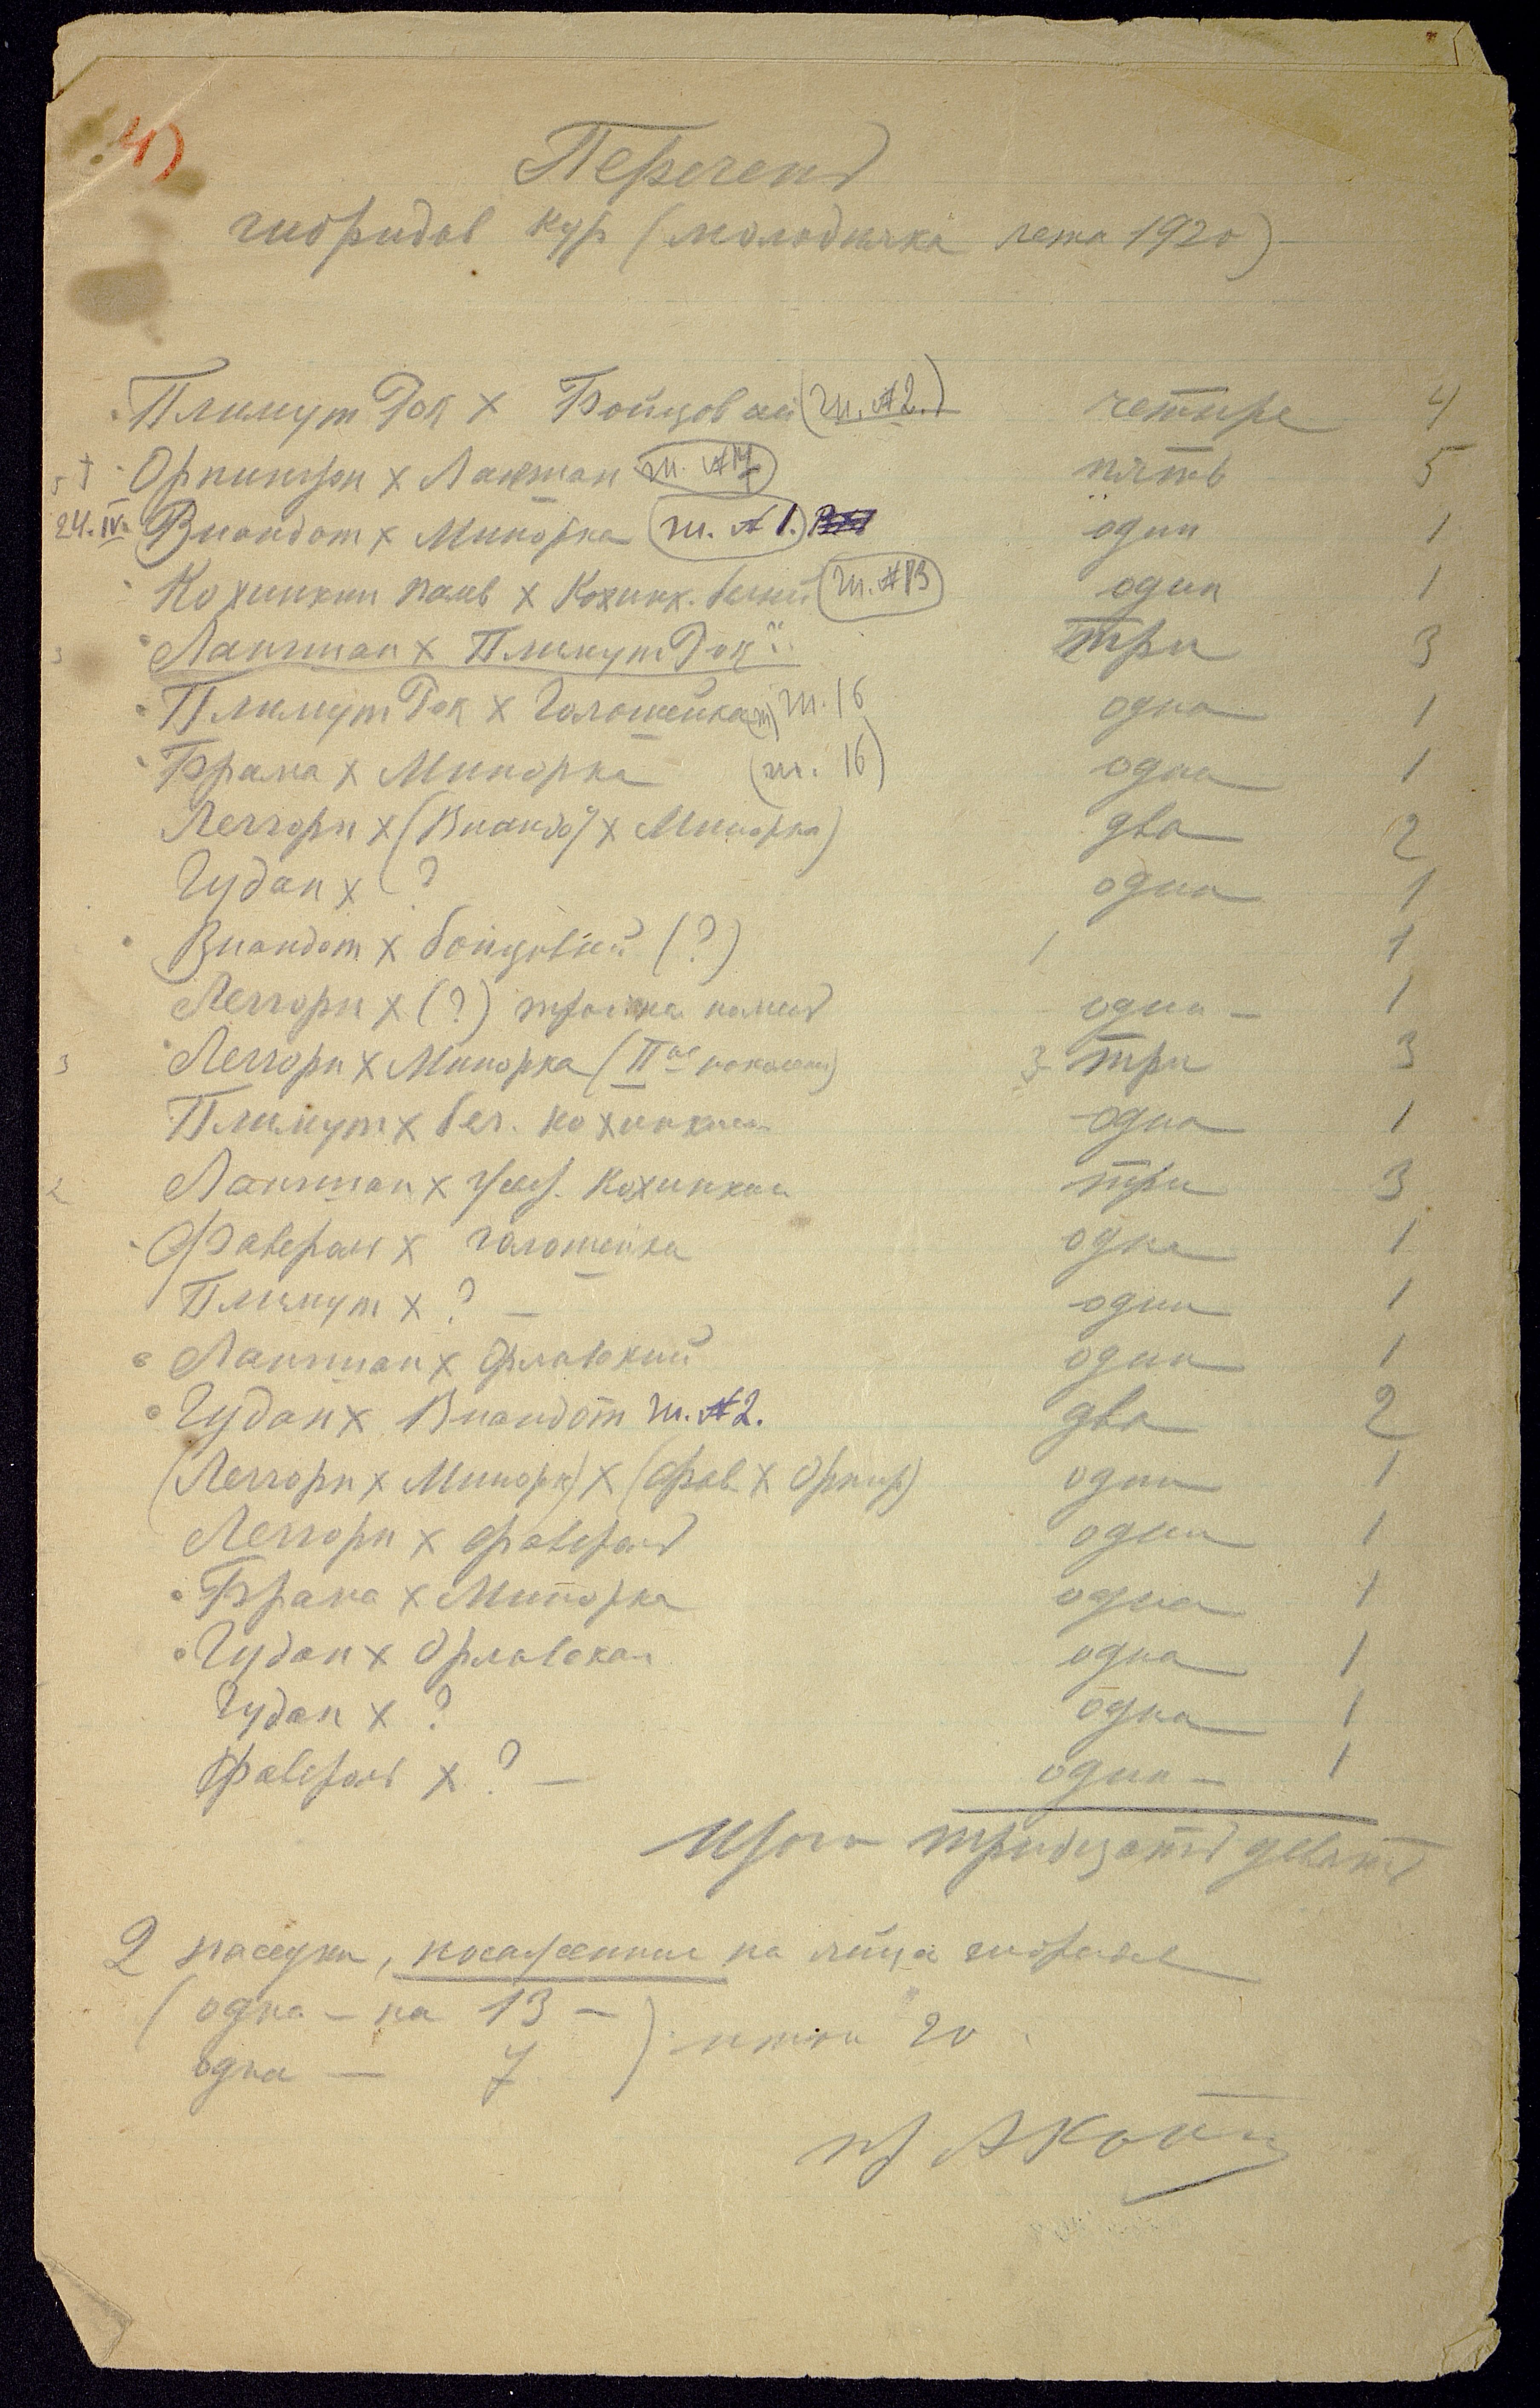 4)
Перечень
гибридов кур (молодняка лета 1920)
Плимут Рок х Бойцовый (ш. №2.) четыре 4
5 † Орпингтон х Лангшан ш. №17 пять 5
24.IV. Виандот х Минорка (ш. № 1.) один 1
Кохинхин палев х Кохинх. белый (ш. №13) один 1
3 Лангшан х Плимут Рок три 3
Плимут Рок х Голошейка ш. 16 одна 1
Брама х Минорка (ш. 16) одна 1
Леггорн х (Виандот х Минорка) два 2
Гудан х ? одна 1
Виандот х бойцовый (?) 1 1
Леггорн х (?) одна – 1
3 Леггорн х Минорка (IIое поколение) 3 три 3
Плимут х бел. кохинхин одна 1
2 Лангшан х кохинхин три 3
Фавероль х голошейка одна 1
Плимут х ? – один 1
Лангшан х Орловский один 1
Гудан х Виандот ш. №2. два 2
(Леггорн х Минорк) х (Фав х Орпинг) один 1
Леггорн х Фавероль один 1
Брама х Минорка одна 1
Гудан х Орловская одна 1
Гудан х ? одна 1
Фавероль х ? – один – 1
Итого тридцать девять
2 наседки, посаженные на яйца гибридов
(одна – на 13 –
одна — 7) 20